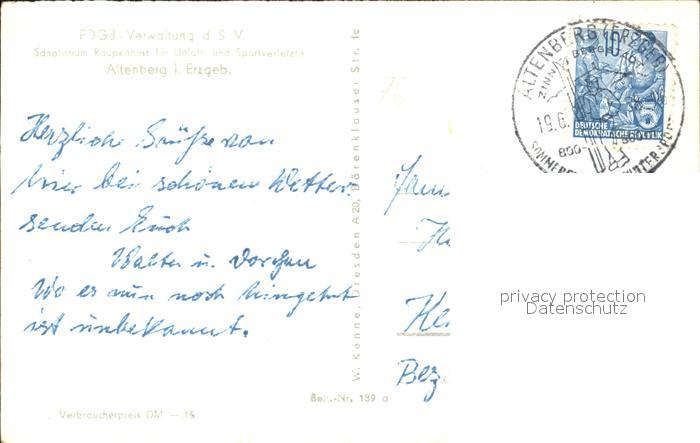 FDGB-Verwaltung d. S. V.
Sanatorium Raupennest für Unfall- und Sportverletzte
Altenberg i. Erzgeb.
Herzliche Grüße von
hier bei schönem Wetter
senden Euch
Walter u. Dorchen
Wo es nun noch hingeht
ist unbekannt.
Verbraucherpreis DM —.15
W. Kenne, Dresden A20, Bärenklauser Str. 1c
Best.-Nr. 189 a
ALTENBERG (ERZGEB)
ZINN BERG
10
19.6.
5
DEUTSCHE
DEMOKRATISCHE REPUBLIK
800-
Fam
Ke
Bez
privacy protection
Datenschutz